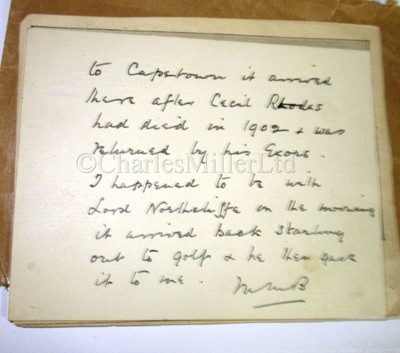 to Capetown it arrived
there after Cecil Rhodes
had died in 1902 & was
returned by his Exors.
©CharlesMillerLtd
I happened to be with
Lord Northcliffe on the morning
it arrived back starting
out to golf & he then gave
it to me.